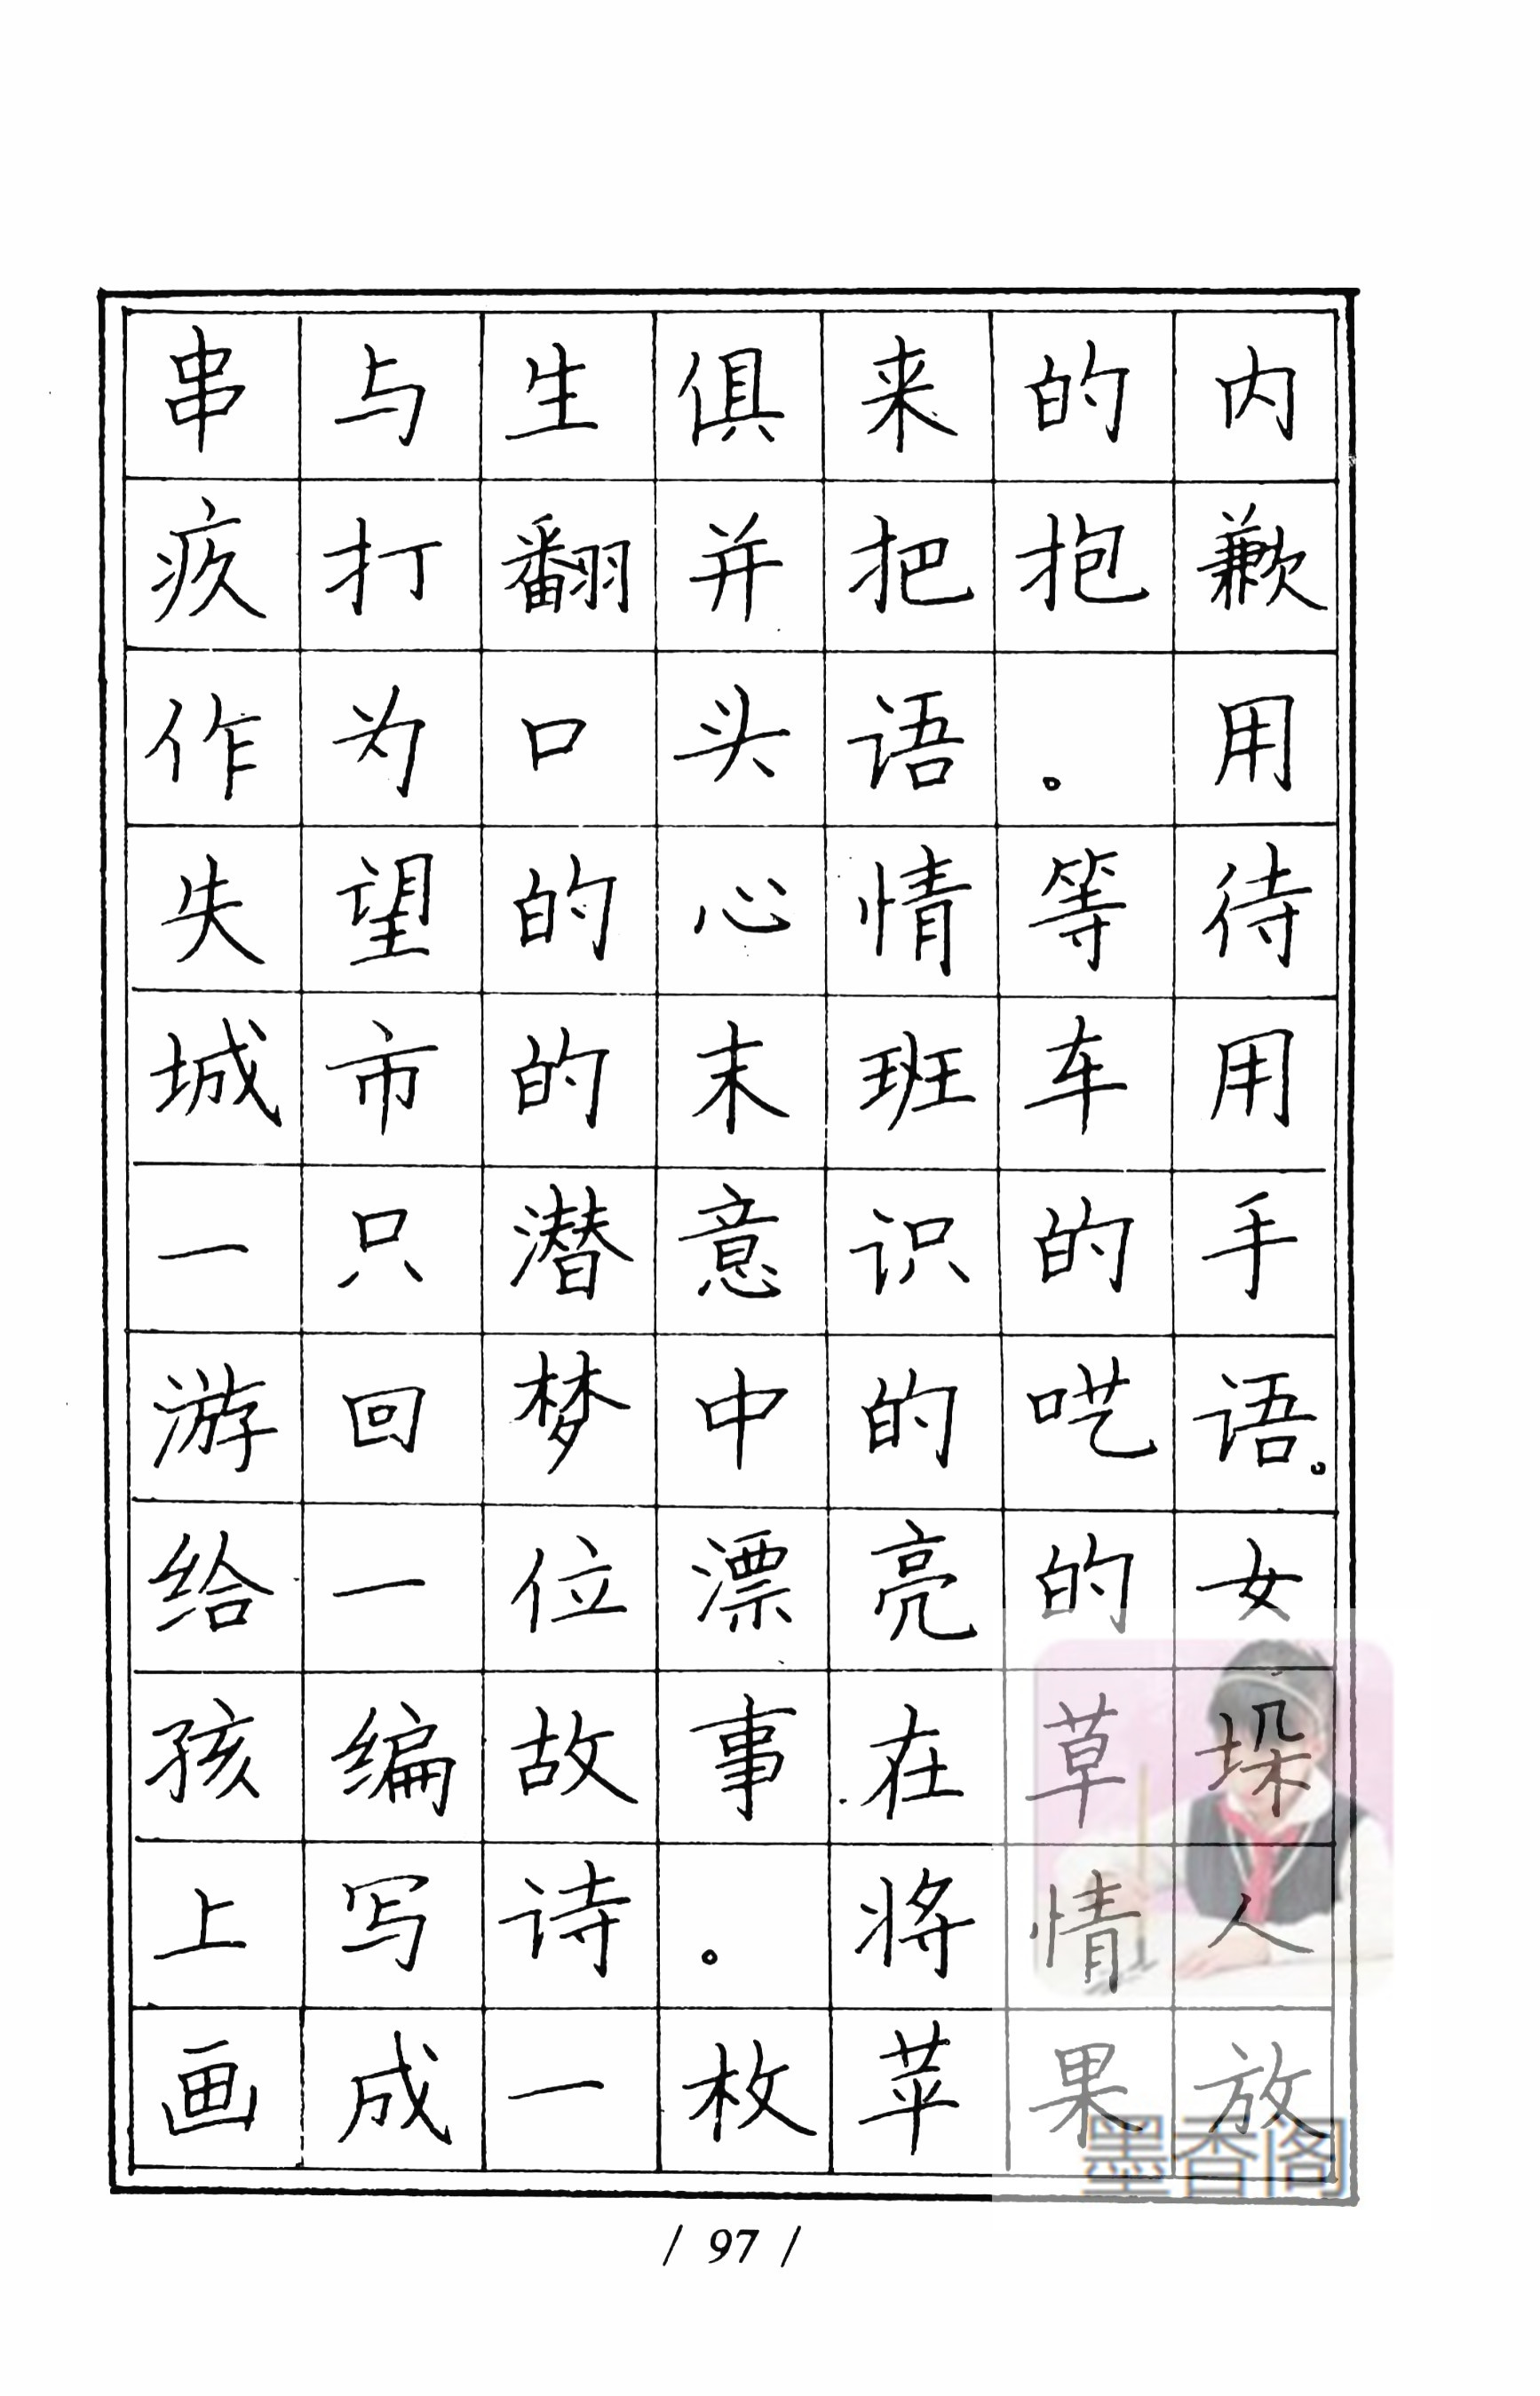 串与生俱来的内
疚打翻并把抱歉
作为口头语。用
失望的心情等待
城市的末班车用
一只潜意识的手
游回梦中的呓语。
给一位漂亮的女
孩编故事在草垛
上写诗。将情人
画成一枚苹果放
墨香阁
/ 97 /